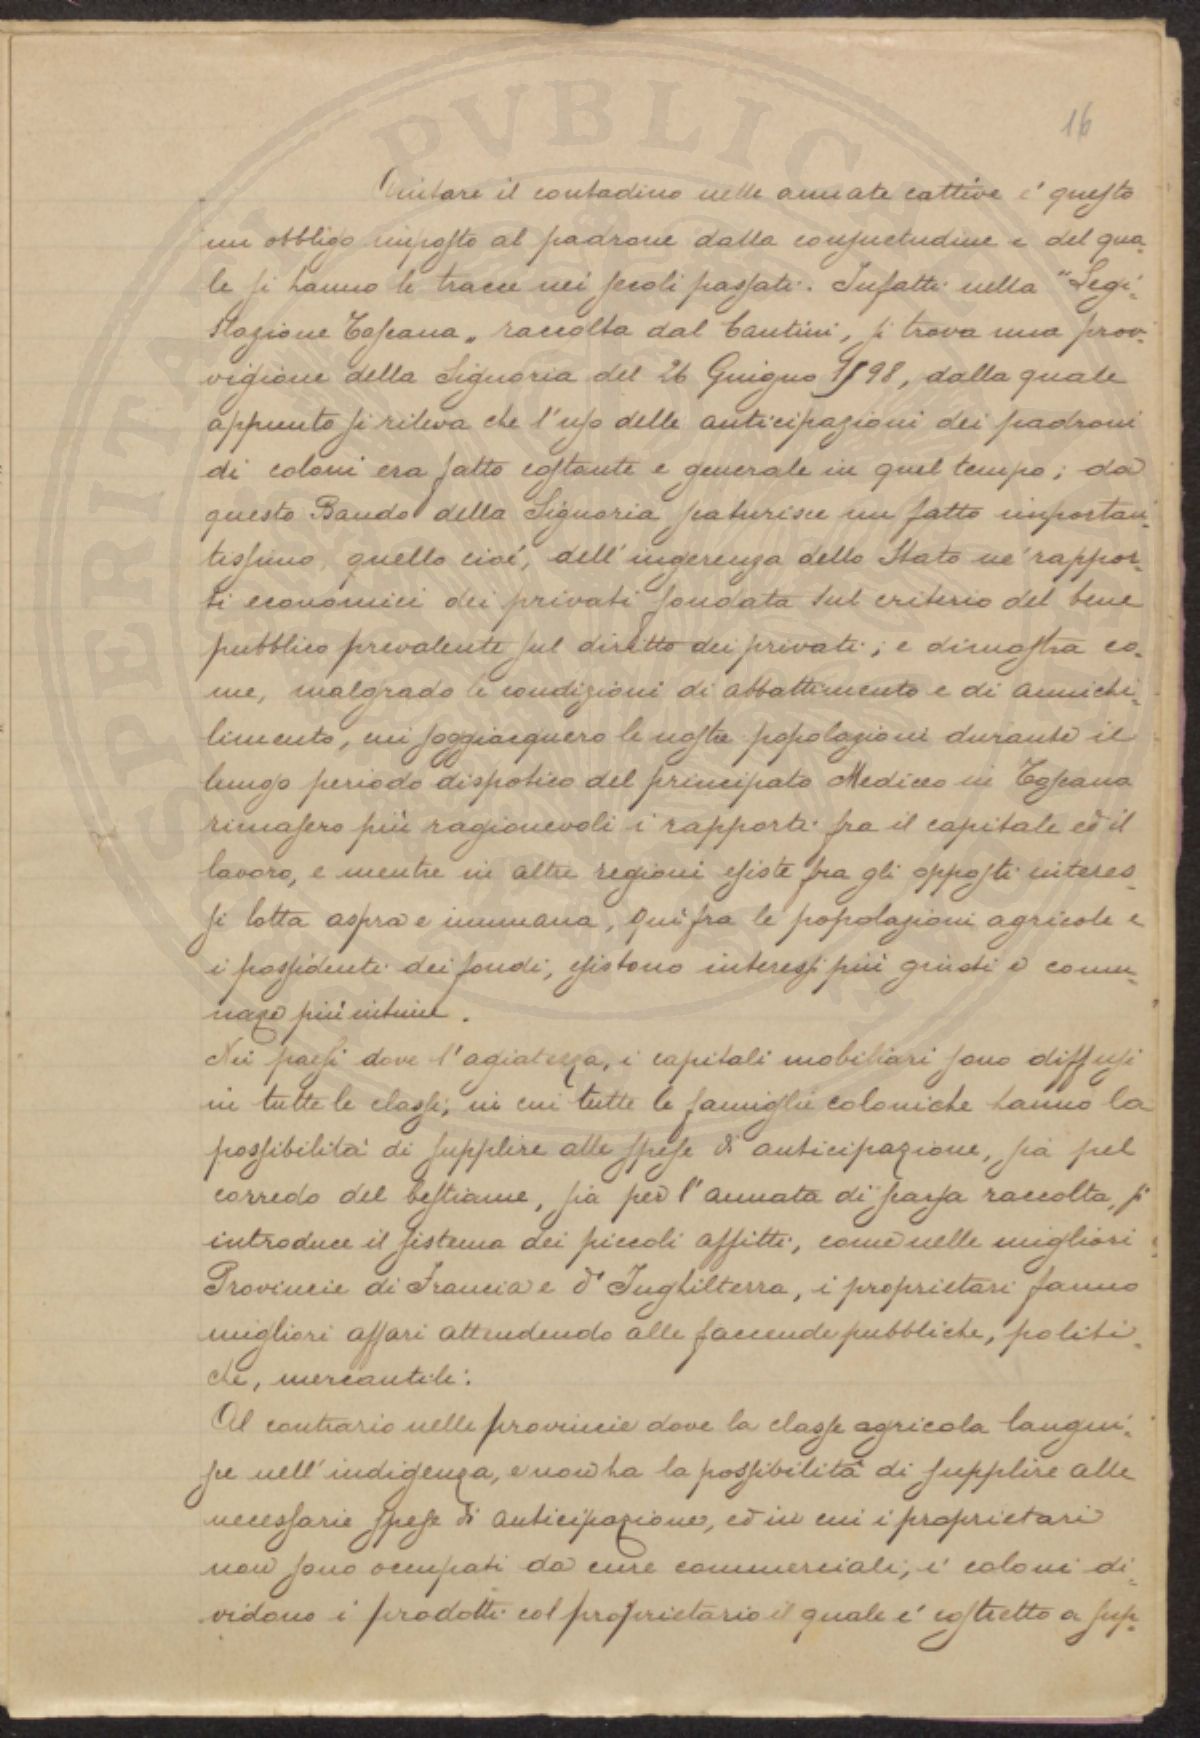 16
Aiutare il contadino nelle annate cattive è questo
un obbligo imposto al padrone dalla consuetudine e del qua-
le si hanno le tracce nei secoli passati. Infatti nella "Legi-
slazione Toscana" raccolta dal Cantini, si trova una prov-
vigione della Signoria del 26 Giugno 1598, dalla quale
appunto si rileva che l'uso delle anticipazioni dei padroni
di coloni era fatto costante e generale in quel tempo; da
questo Bando della Signoria scaturisce un fatto importan-
tissimo, quello cioè, dell'ingerenza dello Stato ne' rappor-
ti economici dei privati fondata sul criterio del bene
pubblico prevalente sul diritto dei privati; e dimostra co-
me, malgrado le condizioni di abbattimento e di annichi-
limento, cui soggiacquero le nostre popolazioni durante il
lungo periodo dispotico del principato Mediceo in Toscana
rimasero più ragionevoli i rapporti fra il capitale ed il
lavoro, e mentre in altre regioni esiste fra gli opposti interes-
si lotta aspra e inumana, qui fra le popolazioni agricole e
i possidenti dei fondi, esistono interessi più giusti e comu-
nanze più intime.
Nei paesi dove l'agiatezza, i capitali mobiliari sono diffusi
in tutte le classi; in cui tutte le famiglie coloniche hanno la
possibilità di supplire alle spese di anticipazione, sia pel
corredo del bestiame, sia per l'annata di scarsa raccolta, si
introduce il sistema dei piccoli affitti, come nelle migliori
Provincie di Francia e d'Inghilterra, i proprietari fanno
migliori affari attendendo alle faccende pubbliche, politi-
che, mercantili.
Al contrario nelle provincie dove la classe agricola langui-
sce nell'indigenza, e non ha la possibilità di supplire alle
necessarie spese di anticipazione, ed in cui i proprietari
non sono occupati da cure commerciali; i coloni di-
vidono i prodotti col proprietario il quale è costretto a sup-